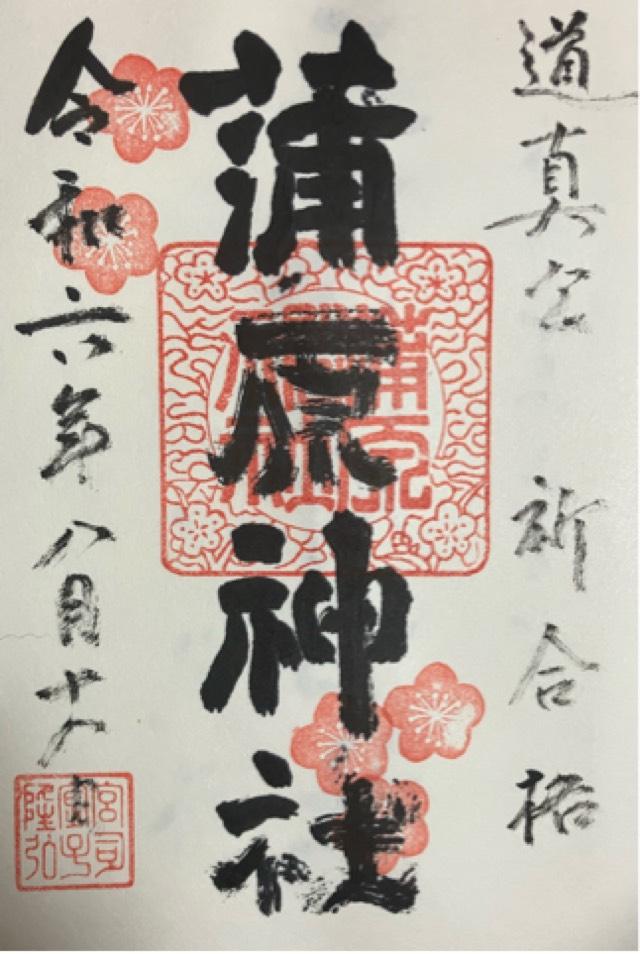 道真公 祈合格
蒲原神社
令和六年八月十八日
蒲原神社